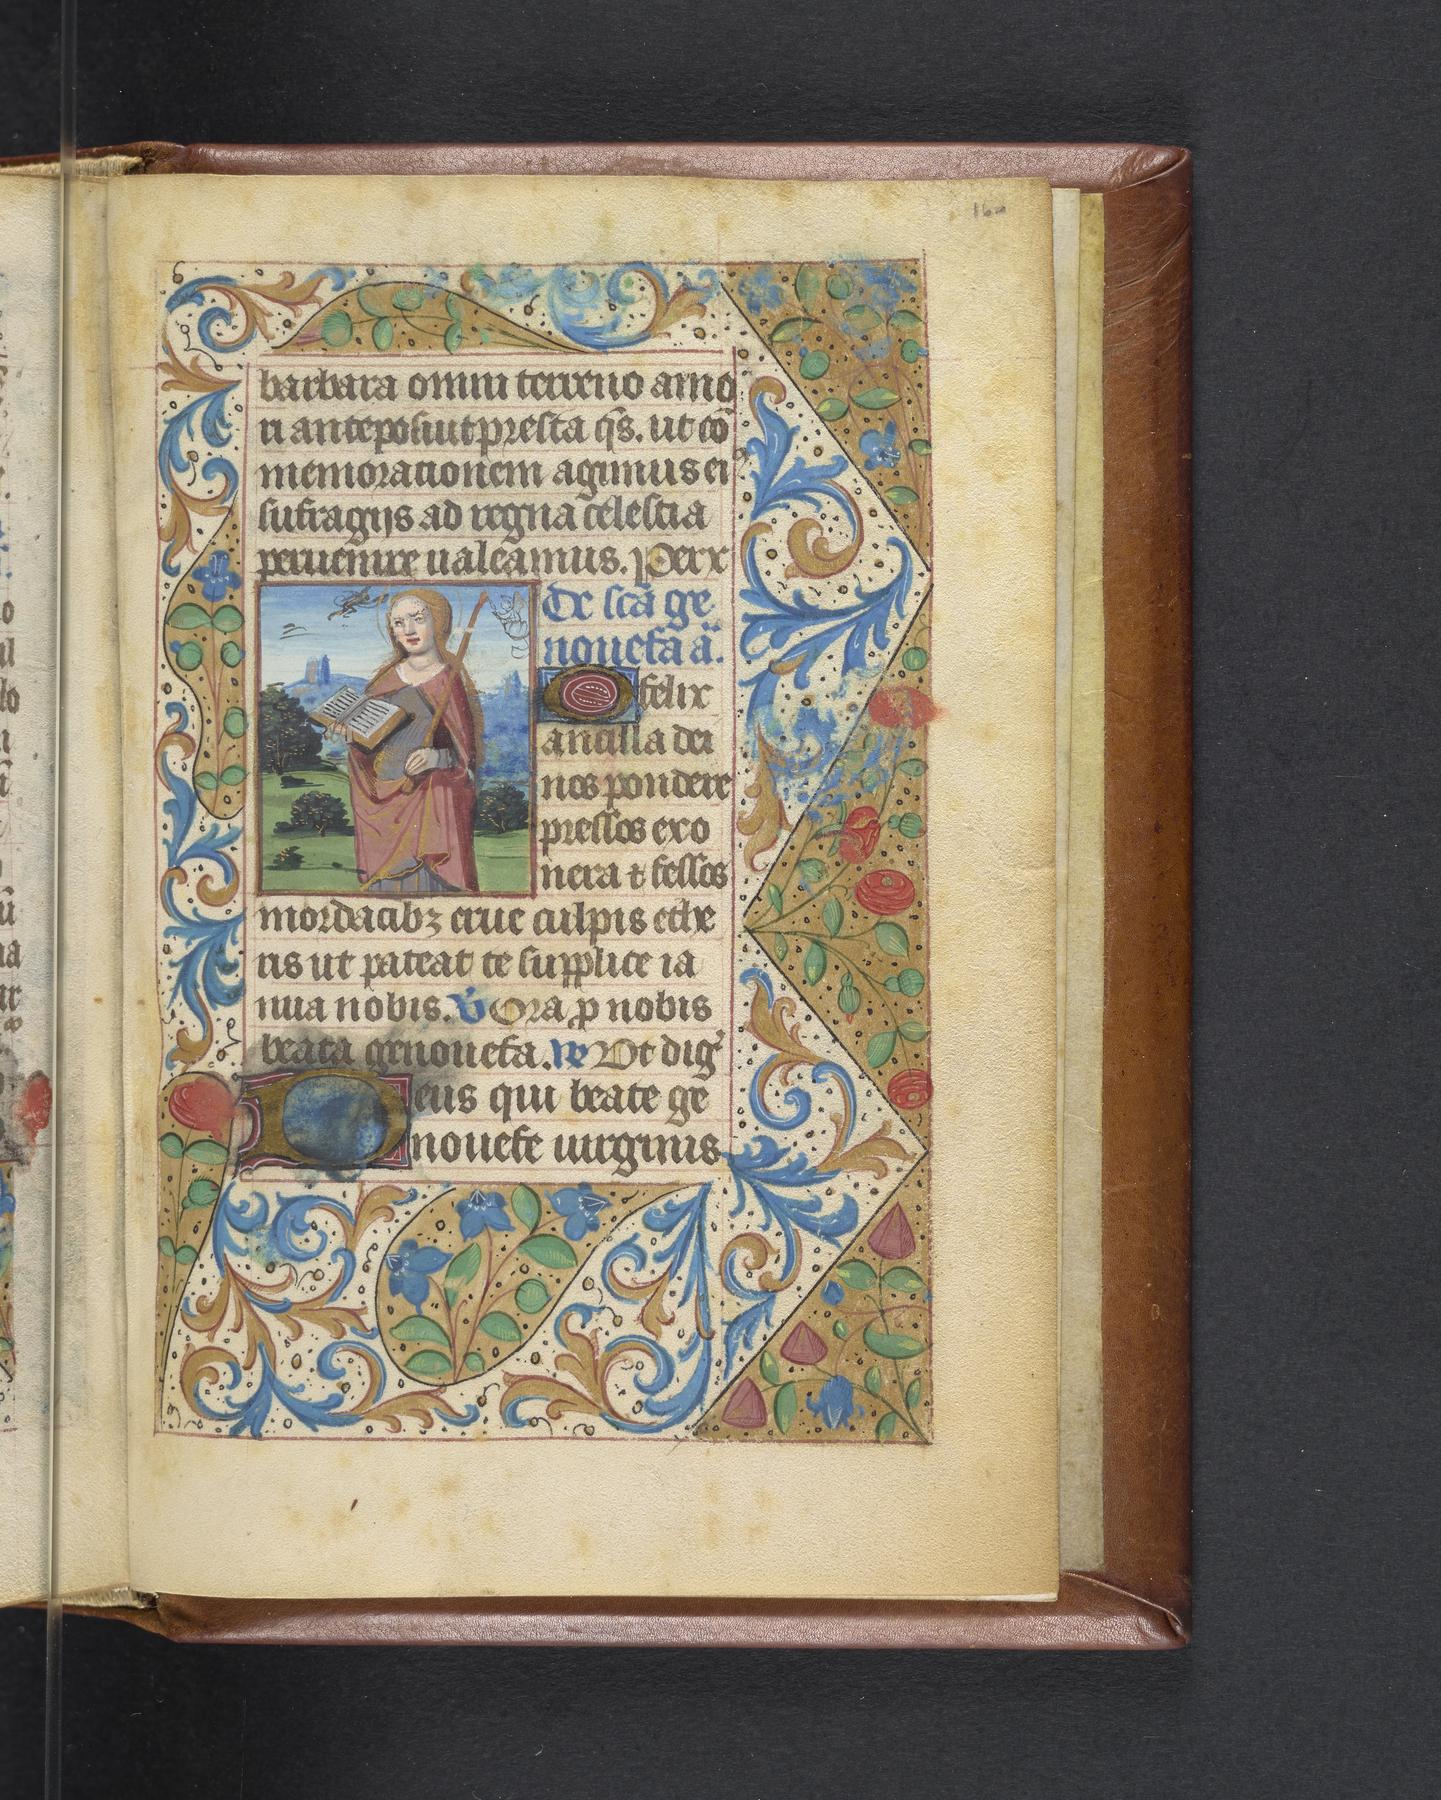 barbara omni terreno amo
ri anteposiut presta q̃s. ut cõ
memorationem agimus ei⁹
sufragijs ad regna celestia
peruenire ualeamus. Per x
De scã ge
nouefa ã.
O felix
ancilla dei
nos pondere
pressos exo
nera ⁊ fessos
mordacibꝫ erue culpis ethe
ris ut pateat te supplice ia
nua nobis. ℣ Ora ꝓ nobis
beata genouefa. ℟ Vt dig̃
Deus qui beate ge
nouefe uirginis